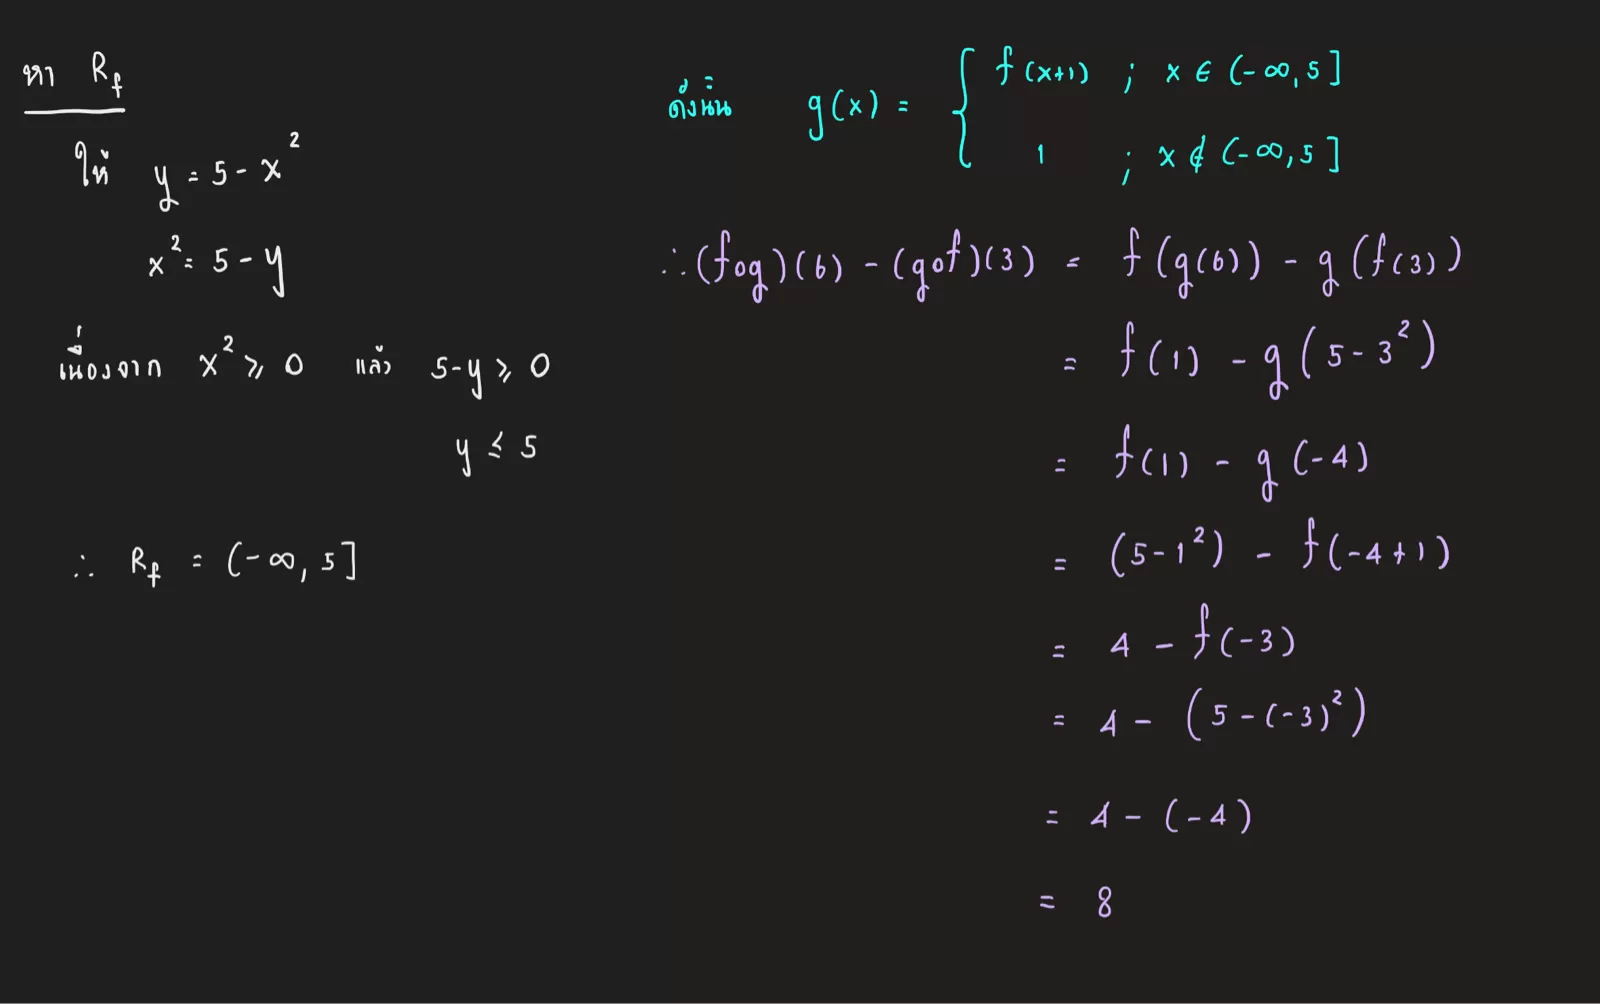 หา R_f
ให้ y = 5 - x²
x² = 5 - y
เนื่องจาก x² ⩾ 0 แล้ว 5-y ⩾ 0
y ≤ 5
∴ R_f = (-∞, 5]
ดังนั้น g(x) = { f(x+1) ; x ∈ (-∞, 5]
1 ; x ∉ (-∞, 5]
∴ (fog)(6) - (gof)(3) = f(g(6)) - g(f(3))
= f(1) - g(5-3²)
= f(1) - g(-4)
= (5-1²) - f(-4+1)
= 4 - f(-3)
= 4 - (5-(-3)²)
= 4 - (-4)
= 8